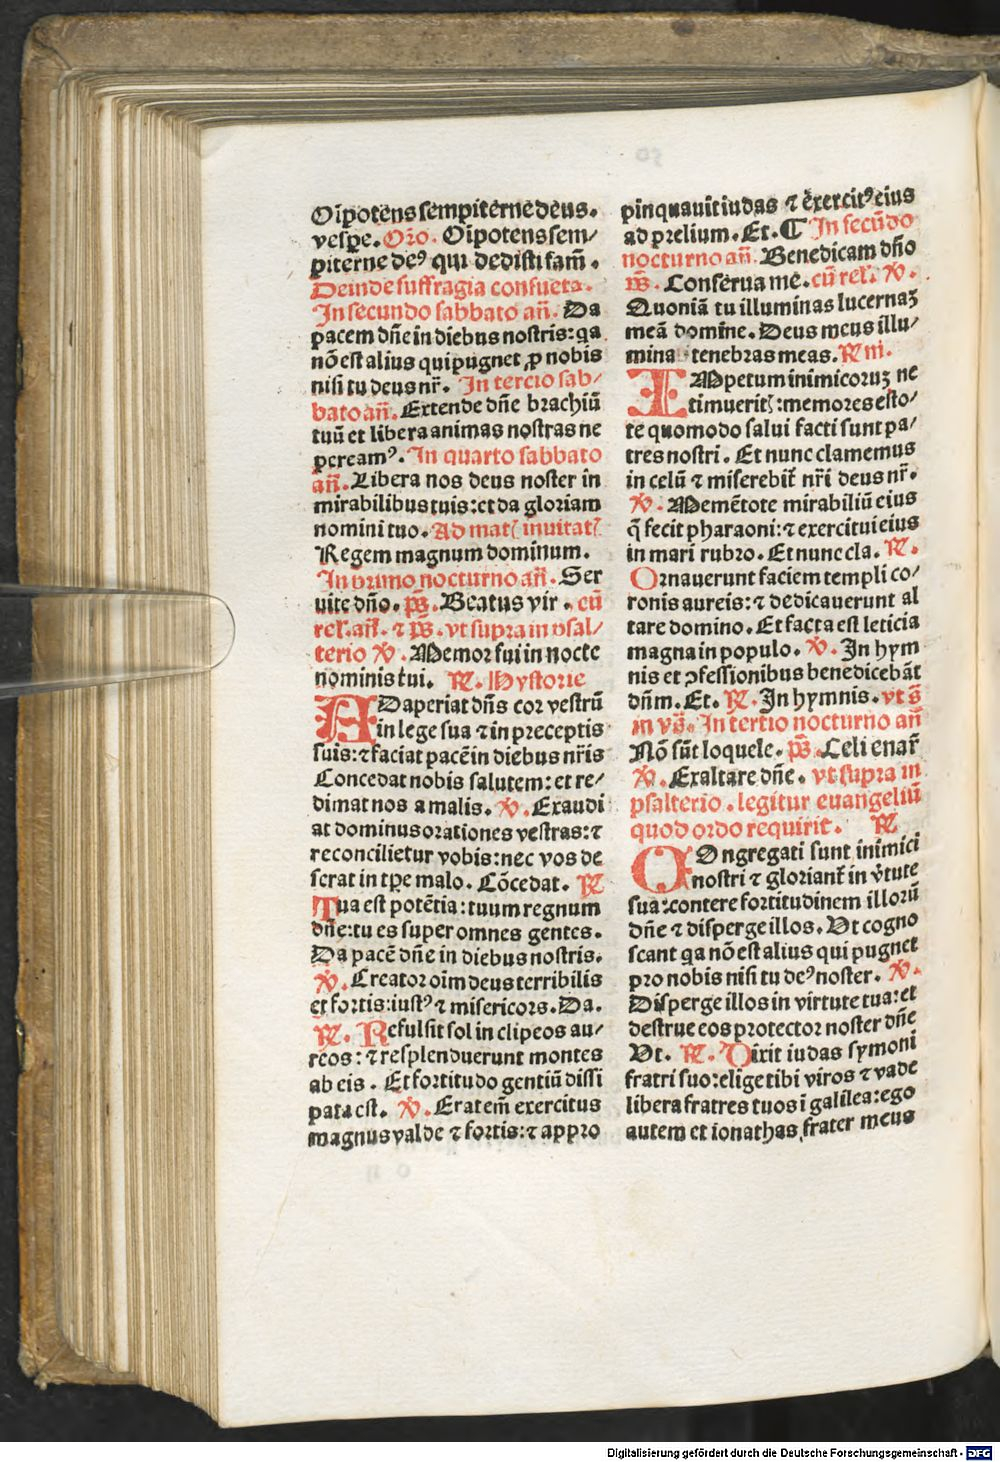 Oĩpotens sempiterne deus.
vespe. Orõ. Oĩpotens sem/
piterne deꝰ qui dedisti fam̃.
Deinde suffragia consueta.
In secundo sabbato añ. Da
pacem dñe in diebus nostris: qa
nõ est alius qui pugnet ꝓ nobis
nisi tu deus nr̃. In tercio sab/
bato añ. Extende dñe brachiũ
tuũ et libera animas nostras ne
pereamꝰ. In quarto sabbato
añ. Libera nos deus noster in
mirabilibus tuis: et da gloriam
nomini tuo. Ad mat inuitat
Regem magnum dominum.
In primo nocturno añ. Ser
uite dño. ps̃. Beatus vir. cũ
rel. añ. ⁊ ps̃. vt supra in psal/
terio ℣. Memor fui in nocte
nominis tui. ℟. Hystorie
ADaperiat dñs cor vestrũ
in lege sua ⁊ in preceptis
suis: ⁊ faciat pacẽ in diebus nr̃is
Concedat nobis salutem: et re/
dimat nos a malis. ℣. Exaudi
at dominus orationes vestras: ⁊
reconcilietur vobis: nec vos de
serat in tpe malo. Cõcedat. ℟
Tua est potẽtia: tuum regnum
dñe: tu es super omnes gentes.
Da pacẽ dñe in diebus nostris.
℣. Creator oĩm deus terribilis
et fortis: iustꝰ ⁊ misericors. Da.
℟. Refulsit sol in clipeos au/
reos: ⁊ resplenduerunt montes
ab eis. Et fortitudo gentiũ dissi
pata est. ℣. Erat em̃ exercitus
magnus valde ⁊ fortis: ⁊ appro
pinquauit iudas ⁊ exercitꝰ eius
ad prelium. Et. ¶ In secũdo
nocturno añ. Benedicam dño
ps̃. Conserua me. cũ rel. ℣.
Quoniã tu illuminas lucernaꝫ
meã domine. Deus meus illu/
mina tenebras meas. ℟ iii.
IMpetum inimicoruꝫ ne
timuerit: memores esto/
te quomodo salui facti sunt pa/
tres nostri. Et nunc clamemus
in celũ ⁊ miserebit̃ nr̃i deus nr̃.
℣. Memẽtote mirabiliũ eius
q̃ fecit pharaoni: ⁊ exercitui eius
in mari rubro. Et nunc cla. ℟.
Ornauerunt faciem templi co/
ronis aureis: ⁊ dedicauerunt al
tare domino. Et facta est leticia
magna in populo. ℣. In hym
nis et ↄfessionibus benedicebãt
dñm. Et. ℟. In hymnis. vt s̃
in vs̃. In tertio nocturno añ
Nõ sũt loquele. ps̃. Celi enar̃
℣. Exaltare dñe. vt supra in
psalterio. legitur euangeliũ
quod ordo requirit. ℟
COngregati sunt inimici
nostri ⁊ gloriant̃ in v̾tute
sua: contere fortitudinem illorũ
dñe ⁊ disperge illos. Vt cogno
scant qa nõ est alius qui pugnet
pro nobis nisi tu deꝰ noster. ℣.
Disperge illos in virtute tua: et
destrue eos protector noster dñe
Vt. ℟. Dixit iudas symoni
fratri suo: elige tibi viros ⁊ vade
libera fratres tuos ĩ galilea: ego
autem et ionathas frater meus
Digitalisierung gefördert durch die Deutsche Forschungsgemeinschaft - DFG